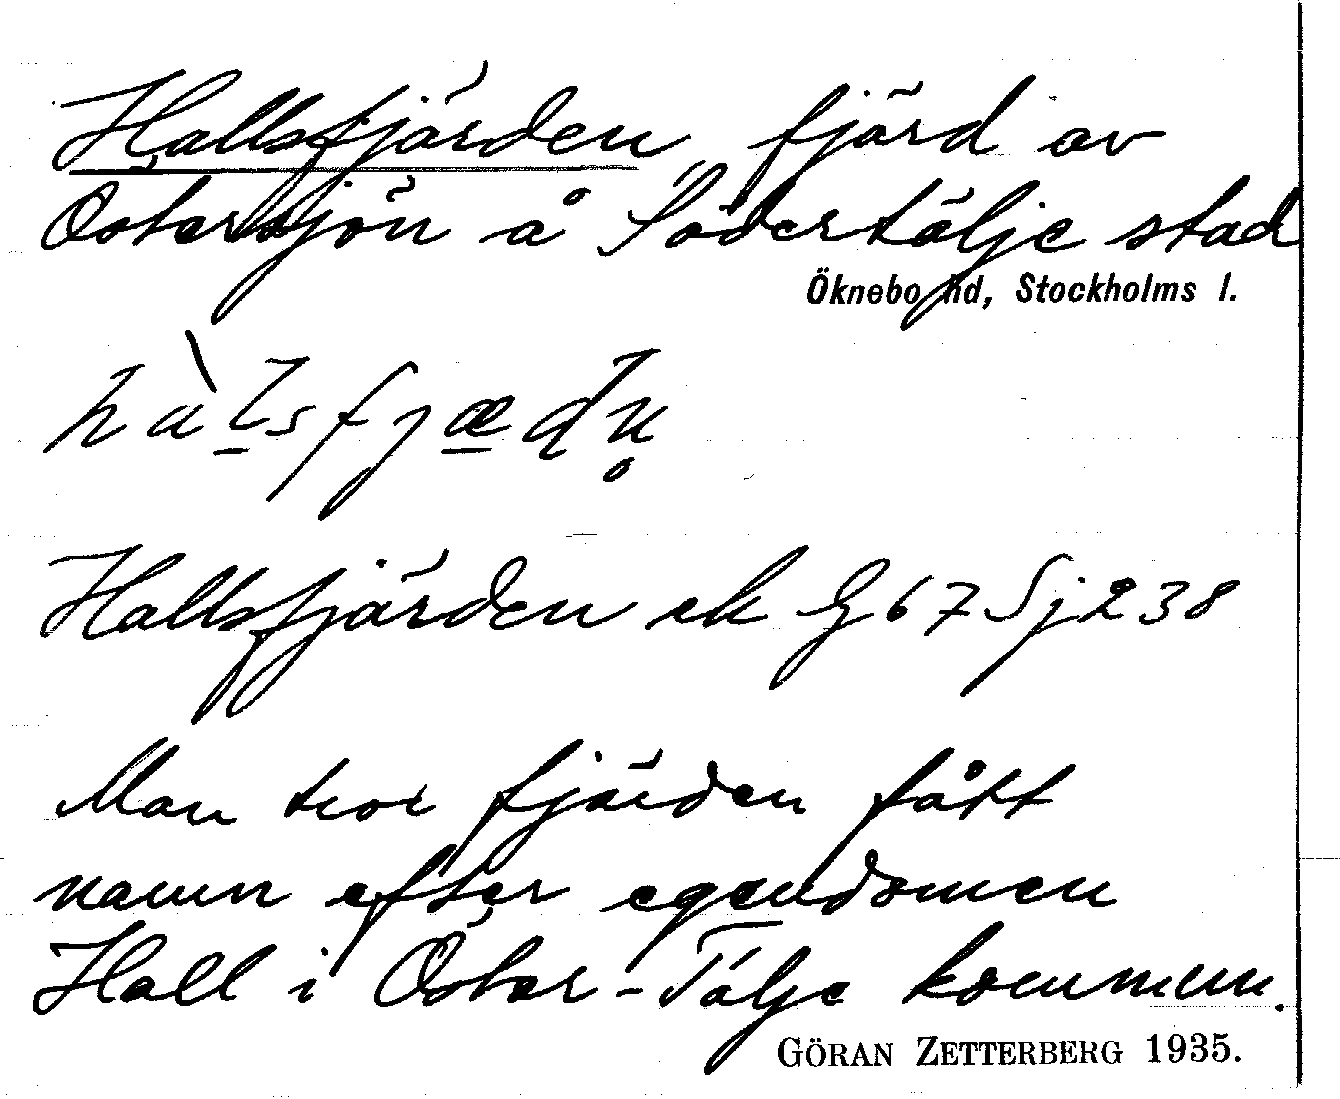 Hallsfjärden, fjärd av
Östersjön å Södertälje stad
Öknebo hd, Stockholms l.
hàlsfjædn̥
Hallsfjärden ek G 67 Sj 238
Man tror fjärden fått
namn efter egendomen
Hall i Öster-Tälje kommun.
GÖRAN ZETTERBERG 1935.